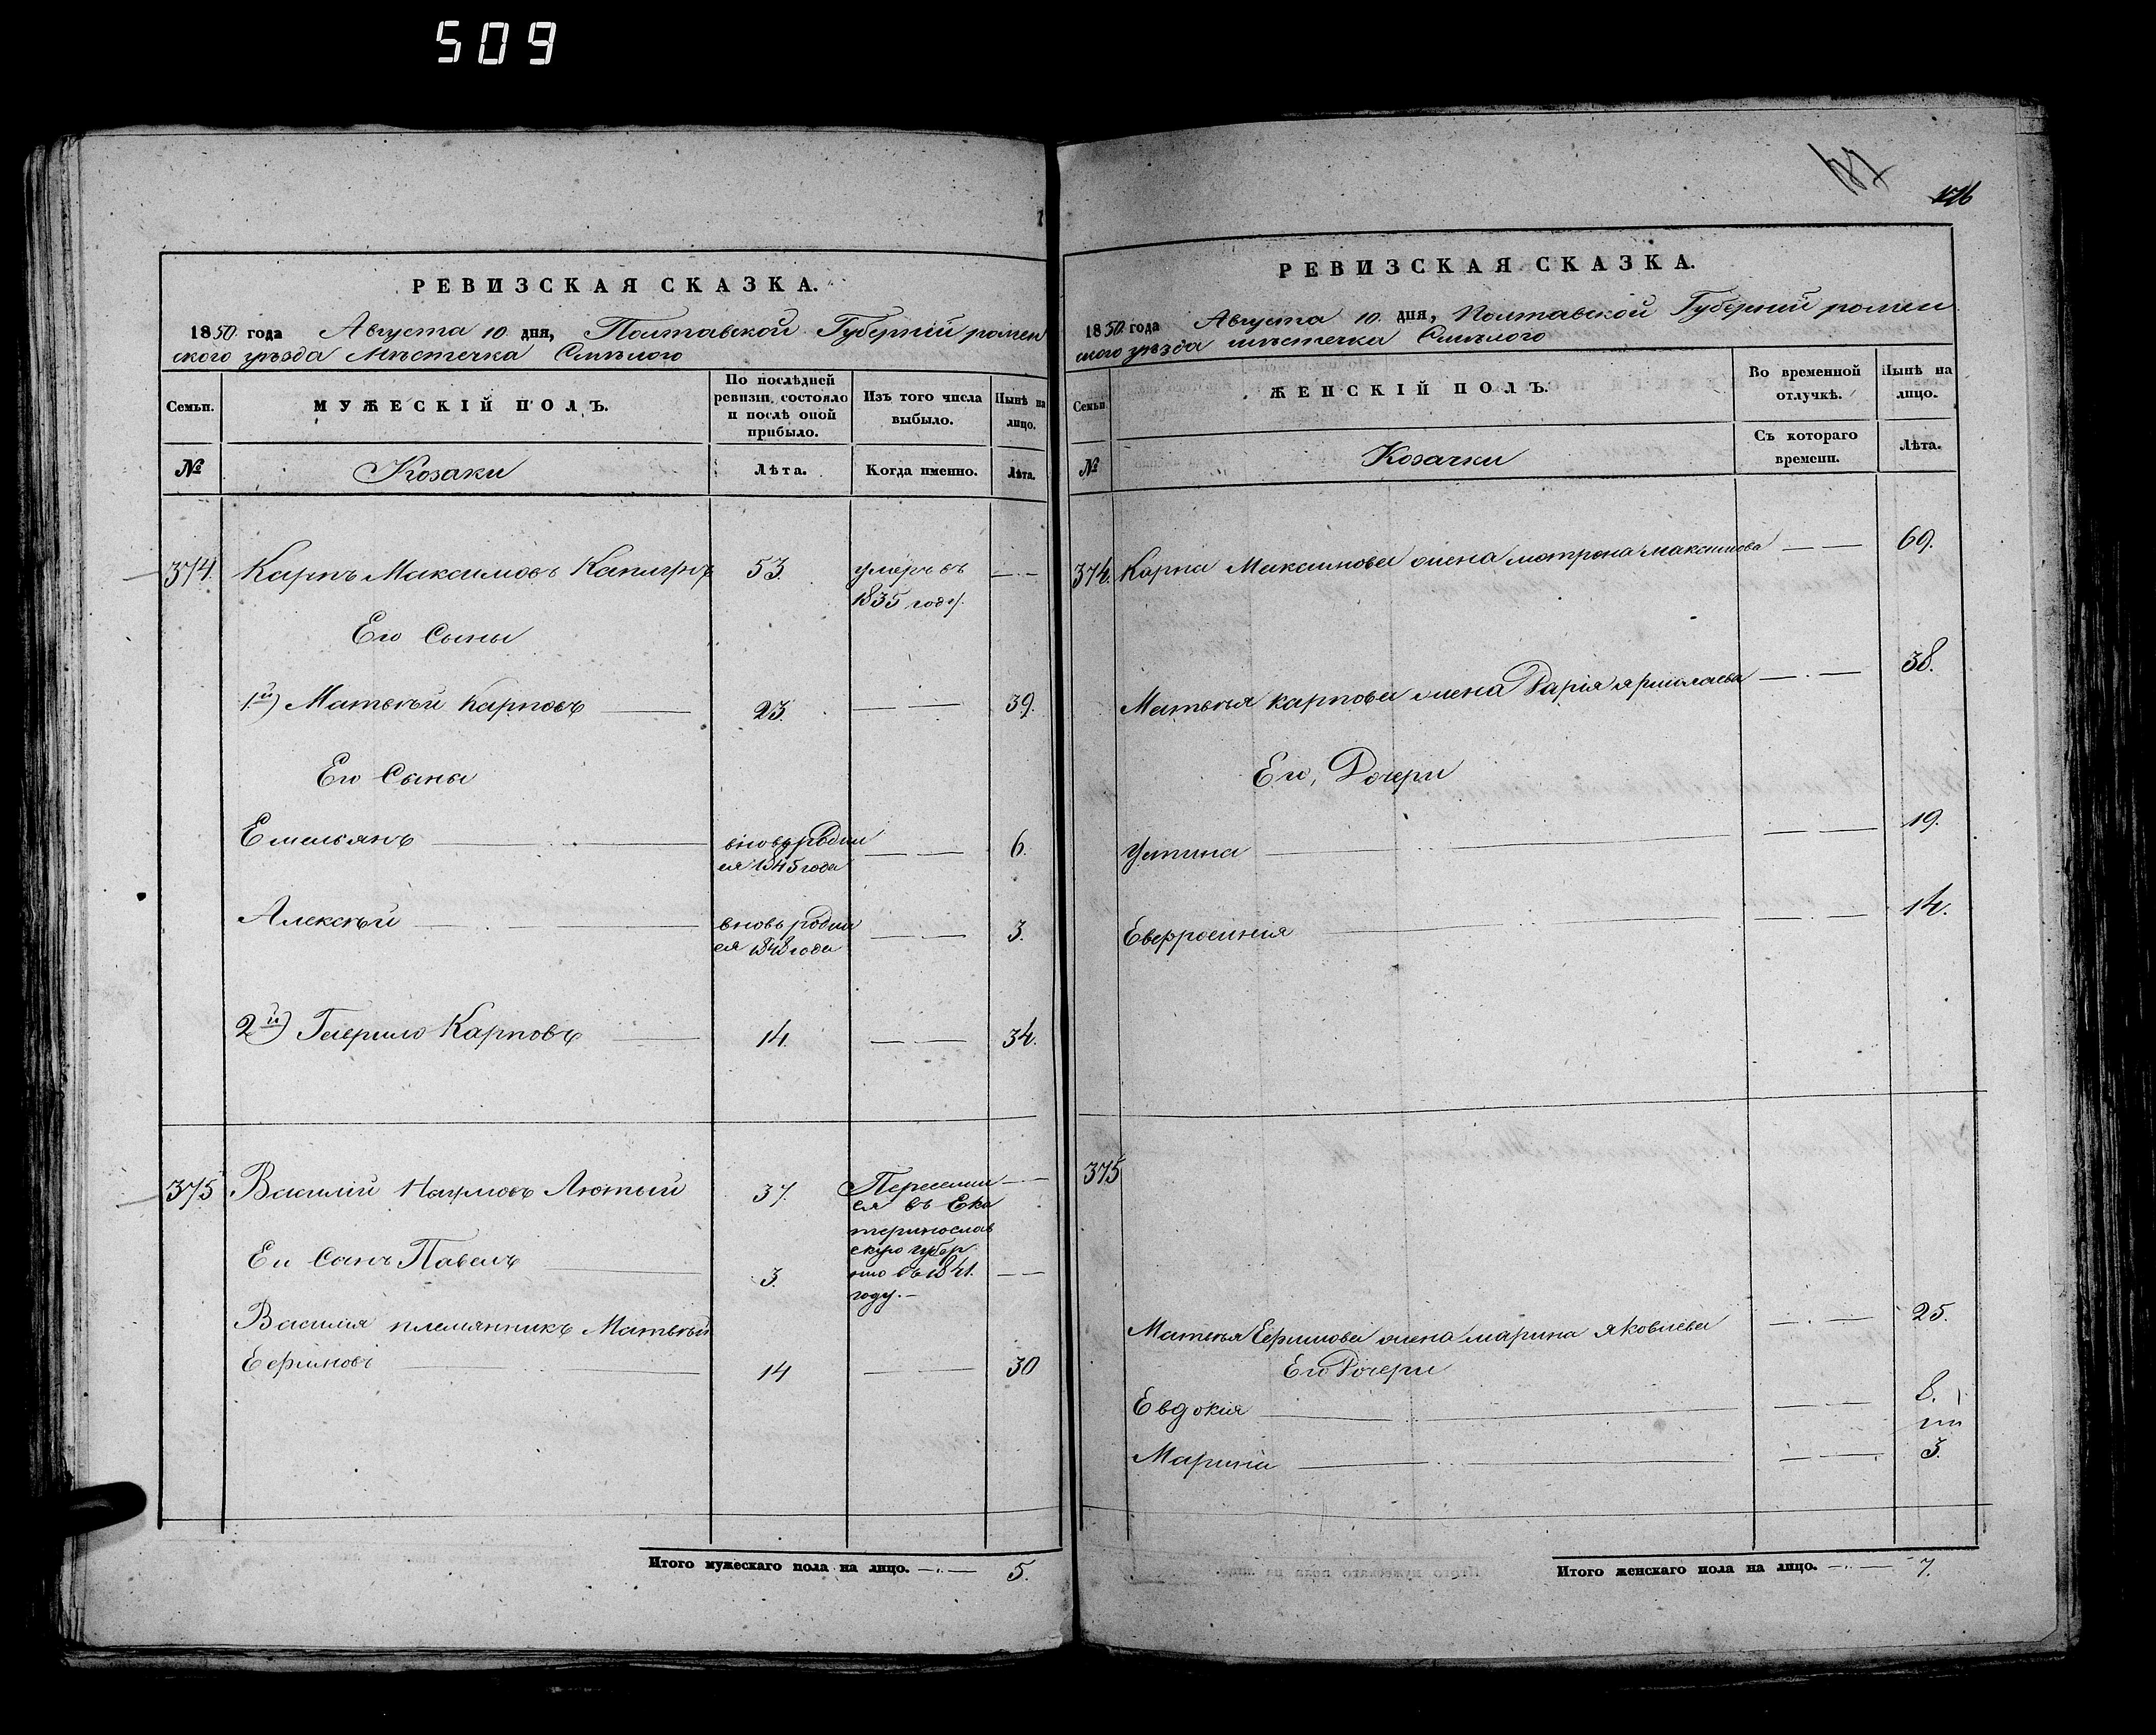 509
РЕВИЗСКАЯ СКАЗКА.
1850 года Августа 10 дня, Полтавской Губерніи ромен
ского уѣзда Мѣстечка Смѣлого
Семьи.
МУЖЕСКІЙ ПОЛЪ.
По послѣдней ревизіи состояло и послѣ оной прибыло.
Изъ того числа выбыло.
Нынѣ на лицо.
№
Козаки
Лѣта.
Когда именно.
Лѣта.
374. Карпъ Максимовъ 53. умеръ въ — —
1835 году.
Его Сыны
1й) Матвѣй Карповъ — 23 — — 39.
Его Сыны
Емельянъ — вновь родил — — 6.
ся 1845 года
Алексѣй — вновь родил — — 3.
ся 1848 года
2й) Гаврило Карповъ — 14. — — 34.
375 Василій Наумовъ Лютый 37. Переселил — —
ся въ Ека
теринослав
скую губер
Ег Сынъ Павелъ — 3. нію въ 1841. — —
году. —
Василія племянникъ Матвѣй
Ефимовъ — 14 — — 30
Итого мужескаго пола на лицо. — 5.
176
РЕВИЗСКАЯ СКАЗКА.
1850 года Августа 10 дня, Полтавской Губерніи ромен
ского уѣзда мѣстечка Смѣлого
Семьи
ЖЕНСКІЙ ПОЛЪ.
Во временной отлучкѣ.
Нынѣ на лицо.
№
Козачки
Съ котораго времени.
Лѣта.
374. Карпа Максимова жена матрона максимова — — 69.
Матвѣя карпова жена Дарія ярмолаева — — 38.
Его, Дочери
Устина — — — 19.
Евфросинія — — — 14.
375
Матвѣя Ефимова жена марина яковлева — — 25.
Его Дочери
Евдокия — — — 8.
Марина — — — 3.
Итого женскаго пола на лицо. — 7.